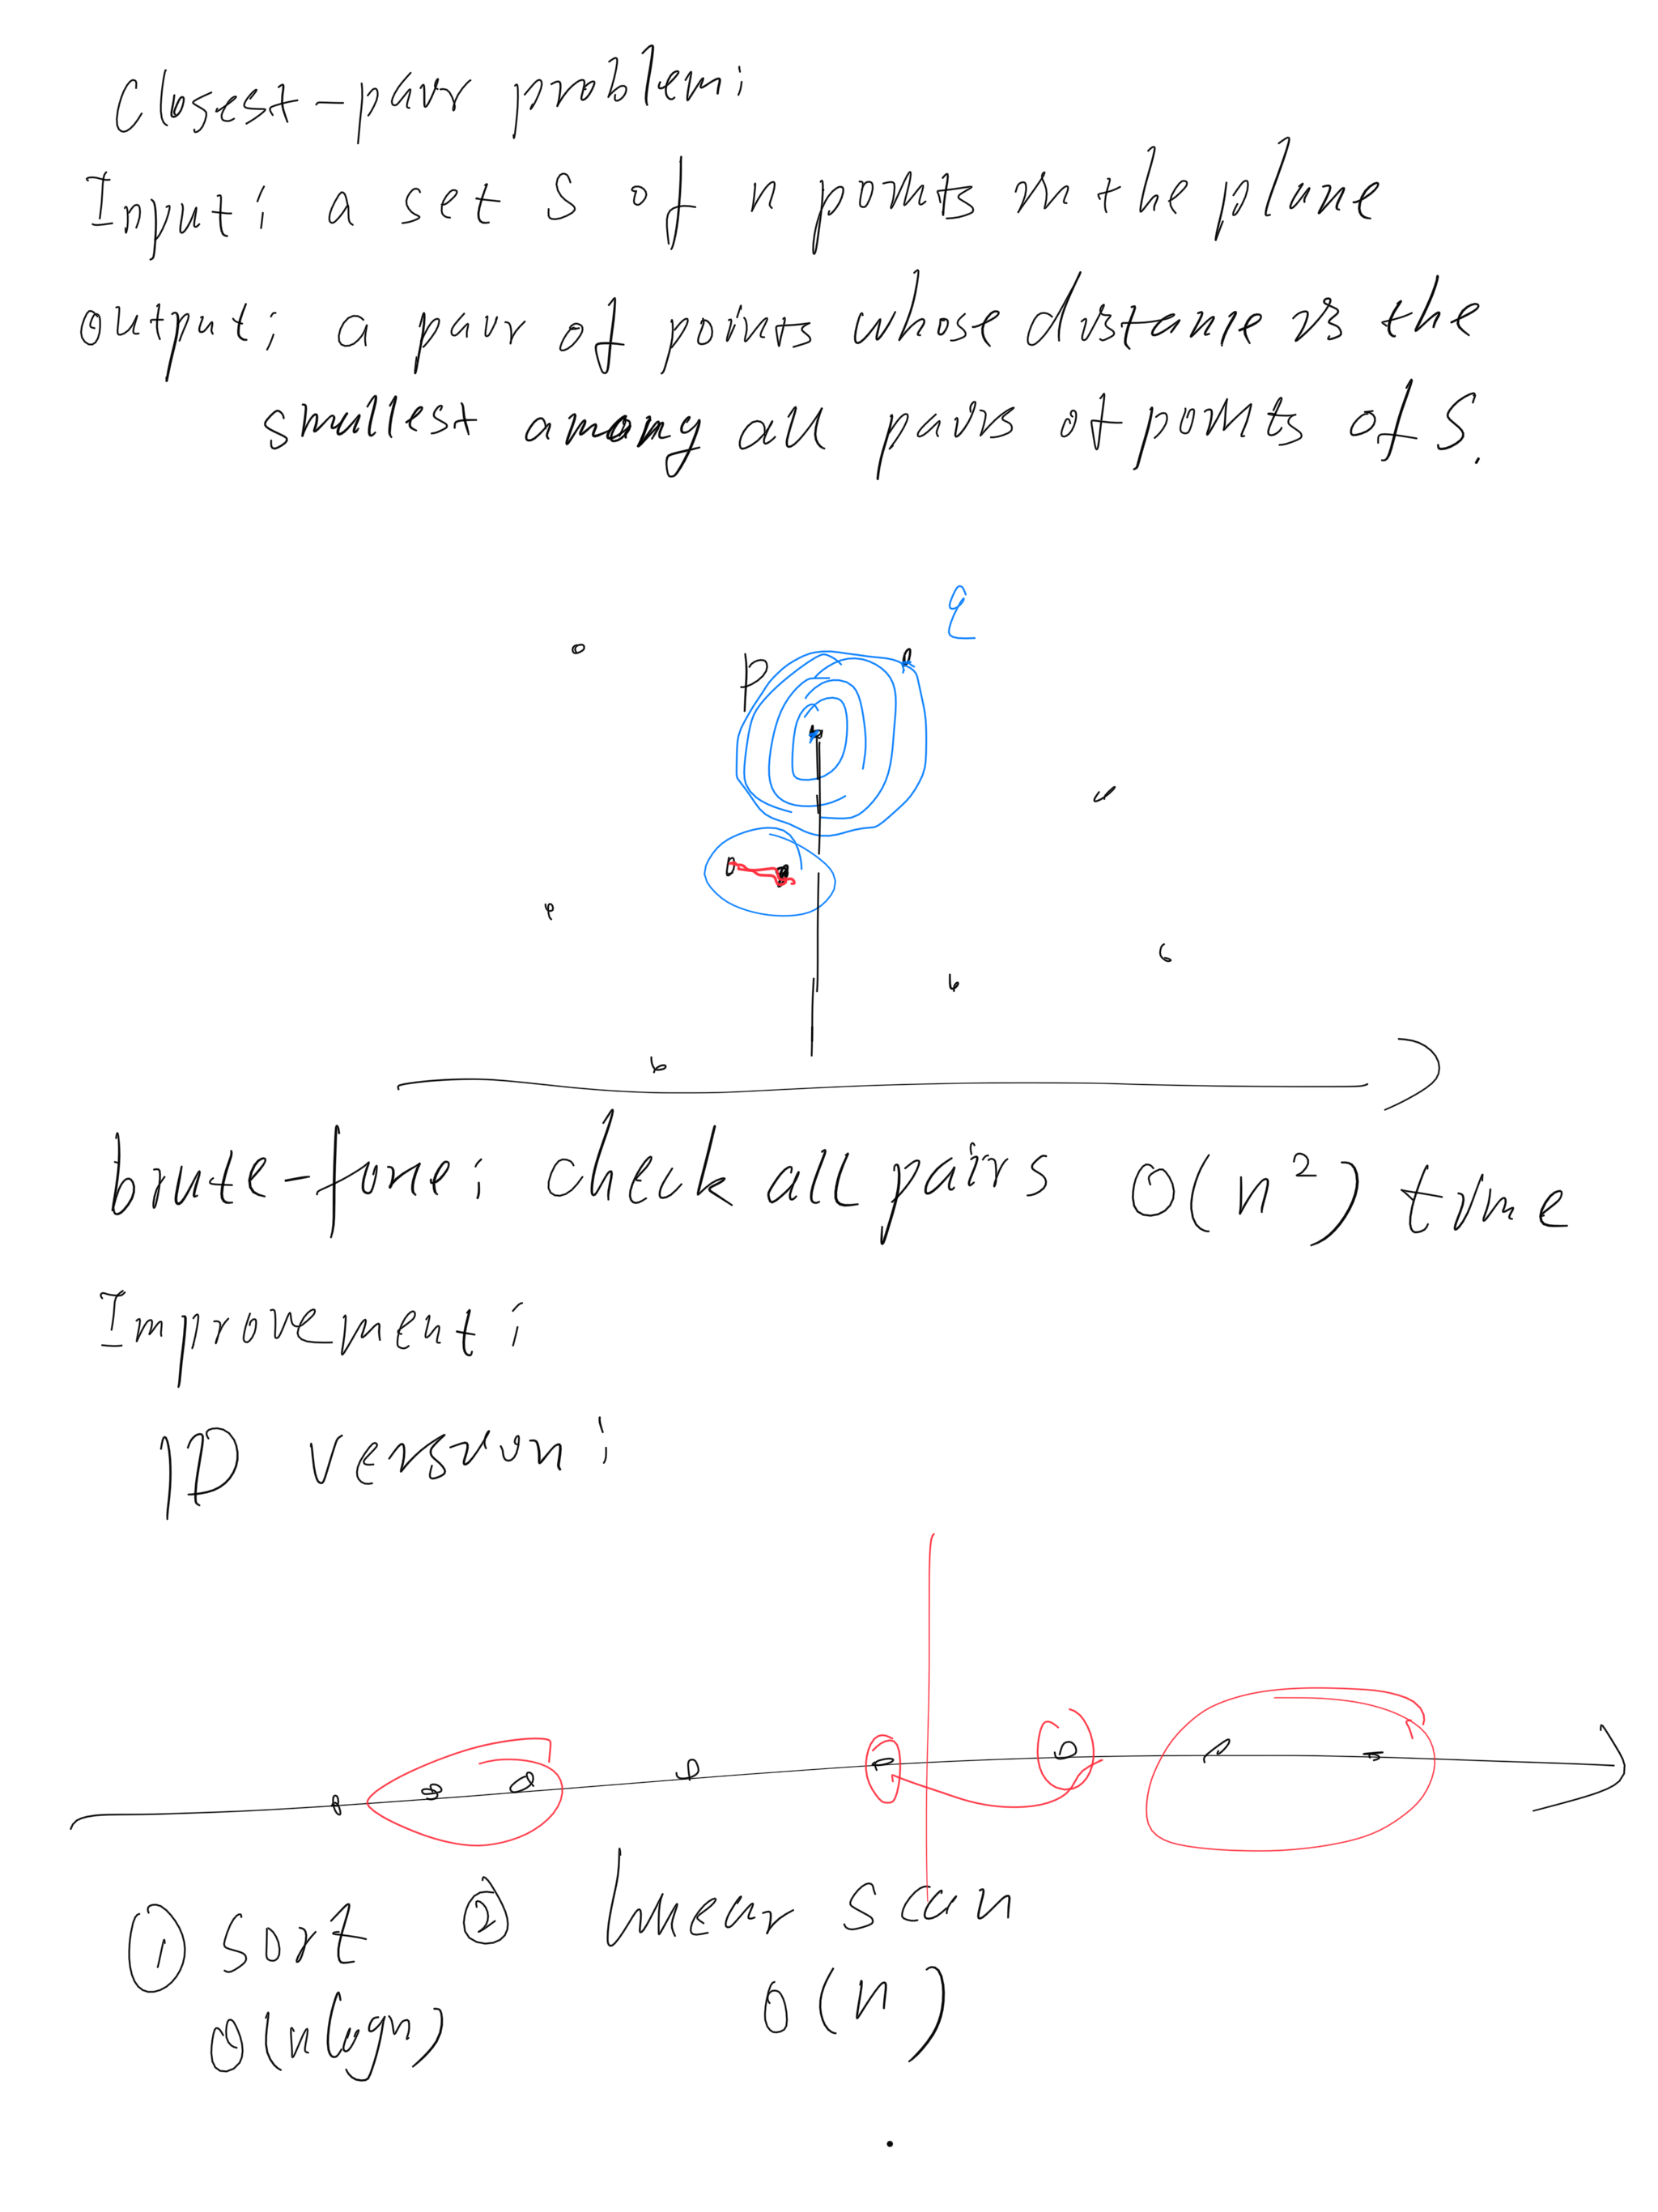 Closest-pair problem:
Input: a set S of n points in the plane
output: a pair of points whose distance is the
smallest among all pairs of points of S.
q
p
brute-force: check all pairs O(n²) time
Improvement:
1D version:
① sort ② linear scan
O(nlogn) O(n)